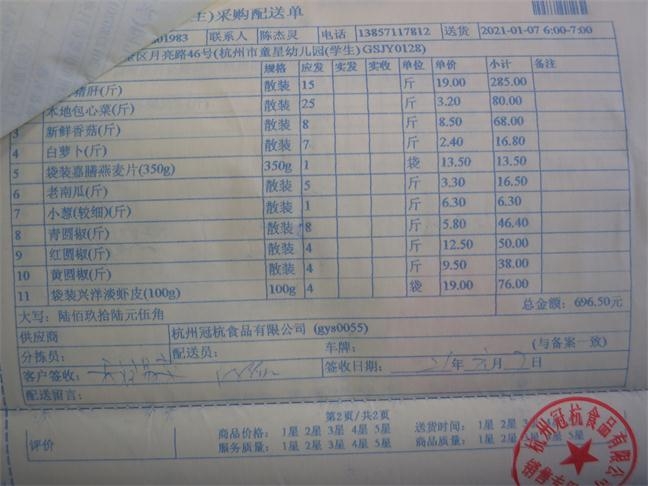 主)采购配送单
01983 联系人 陈杰灵 电话 13857117812 送货 2021-01-07 6:00-7:00
区月亮路46号(杭州市童星幼儿园(学生) GSJY0128)
规格 应发 实发 实收 单位 单价 小计 备注
猪肝(斤) 散装 15 斤 19.00 285.00
本地包心菜(斤) 散装 25 斤 3.20 80.00
3 新鲜香菇(斤) 散装 8 斤 8.50 68.00
4 白萝卜(斤) 散装 7 斤 2.40 16.80
5 袋装嘉膳燕麦片(350g) 350g 1 袋 13.50 13.50
6 老南瓜(斤) 散装 5 斤 3.30 16.50
7 小葱(较细)(斤) 散装 1 斤 6.30 6.30
8 青圆椒(斤) 散装 8 斤 5.80 46.40
9 红圆椒(斤) 散装 4 斤 12.50 50.00
10 黄圆椒(斤) 散装 4 斤 9.50 38.00
11 袋装兴洋淡虾皮(100g) 100g 4 袋 19.00 76.00
大写: 陆佰玖拾陆元伍角 总金额: 696.50元
供应商 杭州冠杭食品有限公司 (gys0055)
分拣员: 配送员: 车牌: (与备案一致)
客户签收: 签收日期: 21年 月 7日
配送留言:
第2页/共2页
评价 商品价格: 1星 2星 3星 4星 5星 送货时间: 1星 2星 3星 4星 5星
服务质量: 1星 2星 3星 4星 5星 商品质量: 1星 2星 5星
杭州冠杭食品有限公司